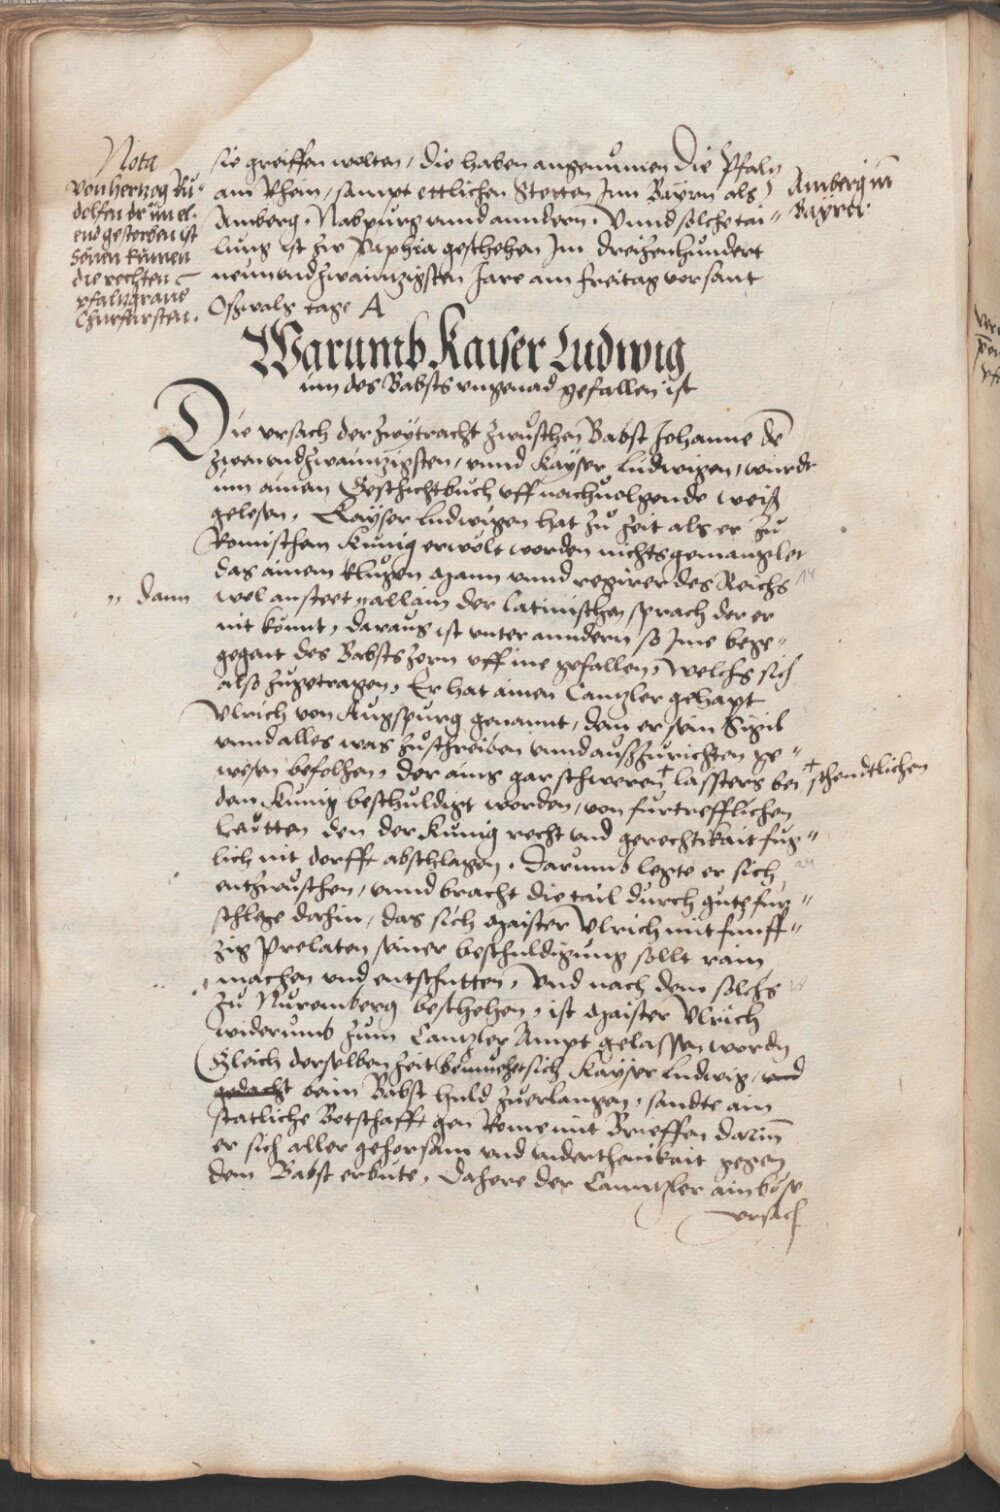 Nota
von hertzog Ru„
dolfen der im el„
end gestorben ist
seinen kinnen
die rechten
pfaltzgraue
Churfursten.
sie greiffen wolten, die haben angenumen die Pfaltz
am Rhein, sampt ettlichen Stetten Inn Bayrn als
Amberg in
Bayrer
Amberg, Nabpurg vnnd anndern. Vnnd solche tai„
lung ist zu Paphia geschehen Im dreizenhundert
neunvndzwaintzigsten Jare am freitag vor sant
Oßwalts tage A
Warumb Kaiser Ludwig
inn des Babsts vngenad gefallen ist
Die vrsach der zwytracht zwuschen Babst Johanne dē
zwenvndzwaintzigsten, vnnd Kayser Ludwigen, wurdt
inn ainem Geschichtbuch vff nachuolgende weiß
gelesen. Kayser Ludwigen hat zu zeit als er zu
Romischem Kunig erwolt worden nichts gemanglet
das ainem klugen Mann vnnd regirer des Reichs
„ dann
wol ansteet „ allain der latinischen sprach der er
nit könnt, daraus ist vnter anndern so Ime bege„
gegnt des Babsts zorn vff ine gefallen, welchs sich
also zugetragen. Er hat ainen Cantzler gehapt
Vlrich von Augspurg genannt, dem er sein Sigil
vnnd alles was zuschreiben vnnd außzurichten ge„
wesen befolhen, der ains gar schweren + lassters bei
+ schendtlichen
dem Kunig beschuldigt worden, von furtrefflichen
Leutten den der Kunig recht vnd gerechtikait fug„
lich nit dorfft abschlagen. Darumb legte er sich
entzwuschen, vnnd bracht die tail durch gute fur„
schlege dahin, das sich Maister Vlrich mit funff„
zig Prelaten seiner beschuldigung sollt rain
machen vnd entschutten, Vnd nach dem solchs
zu Nuremberg beschehen, ist Maister Vlrich
widerumb zum Cantzler Ampt gelassen wordn
Gleich derselben zeit bemuehet sich Kayser Ludwig, vnd
gedacht beim Babst huld zuerlangen, sandte ain
statliche Botschafft gen Rome mit Brieffen darinn
er sich aller gehorsam vnd vnderthenikait gegen
dem Babst erbüte. Dahere der Canntzler ain böse
vrsach